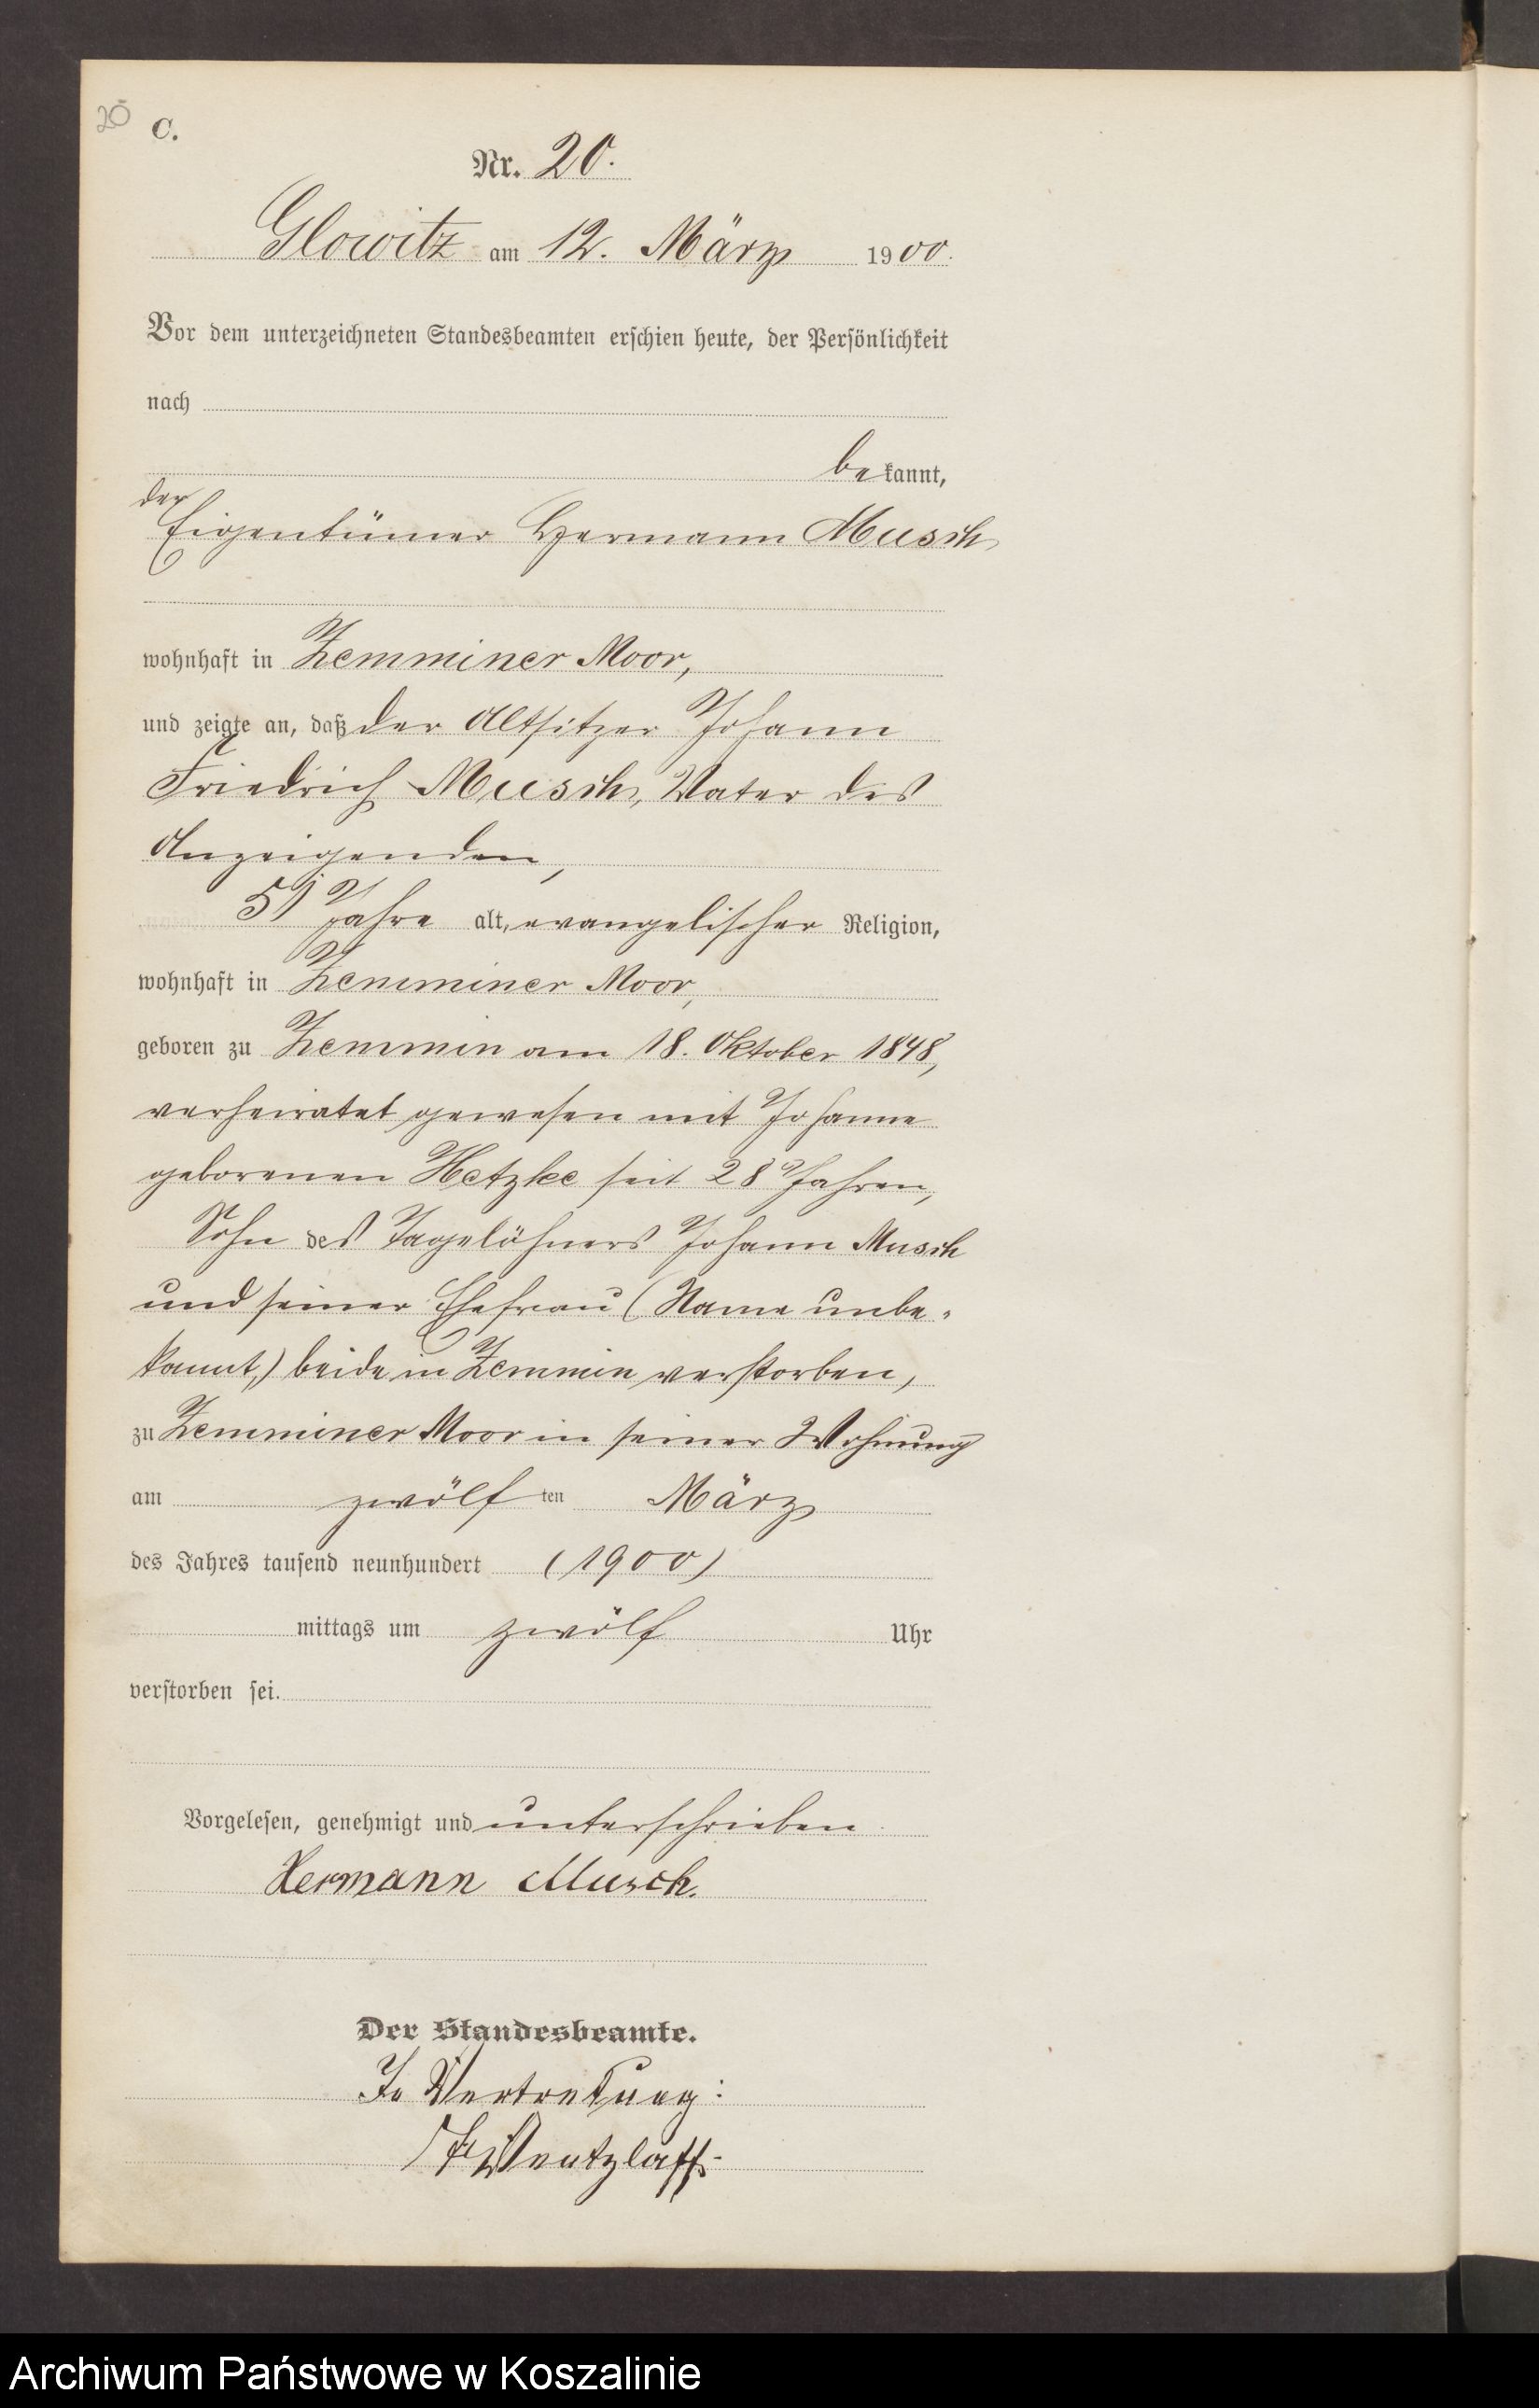 20
C.
Nr. 20.
Glowitz am 12. März 1900.
Vor dem unterzeichneten Standesbeamten erschien heute, der Persönlichkeit
nach
bekannt,
der
Eigentümer Hermann Musch
wohnhaft in Zemminer Moor,
und zeigte an, daß der Altsitzer Johann
Friedrich Musch, Vater des
Anzeigenden,
51 Jahre alt, evangelischer Religion,
wohnhaft in Zemminer Moor,
geboren zu Zemmin am 18. Oktober 1848,
verheiratet gewesen mit Johanne
geborenen Hetzke seit 28 Jahren,
Sohn des Tagelöhners Johann Musch
und seiner Ehefrau (Name unbe-
kannt,) beide in Zemmin verstorben,
zu Zemminer Moor in seiner Wohnung
am zwölften März
des Jahres tausend neunhundert (1900)
mittags um zwölf Uhr
verstorben sei.
Vorgelesen, genehmigt und unterschrieben
Hermann Musch.
Der Standesbeamte.
In Vertretung:
Wentzlaff.
Archiwum Państwowe w Koszalinie